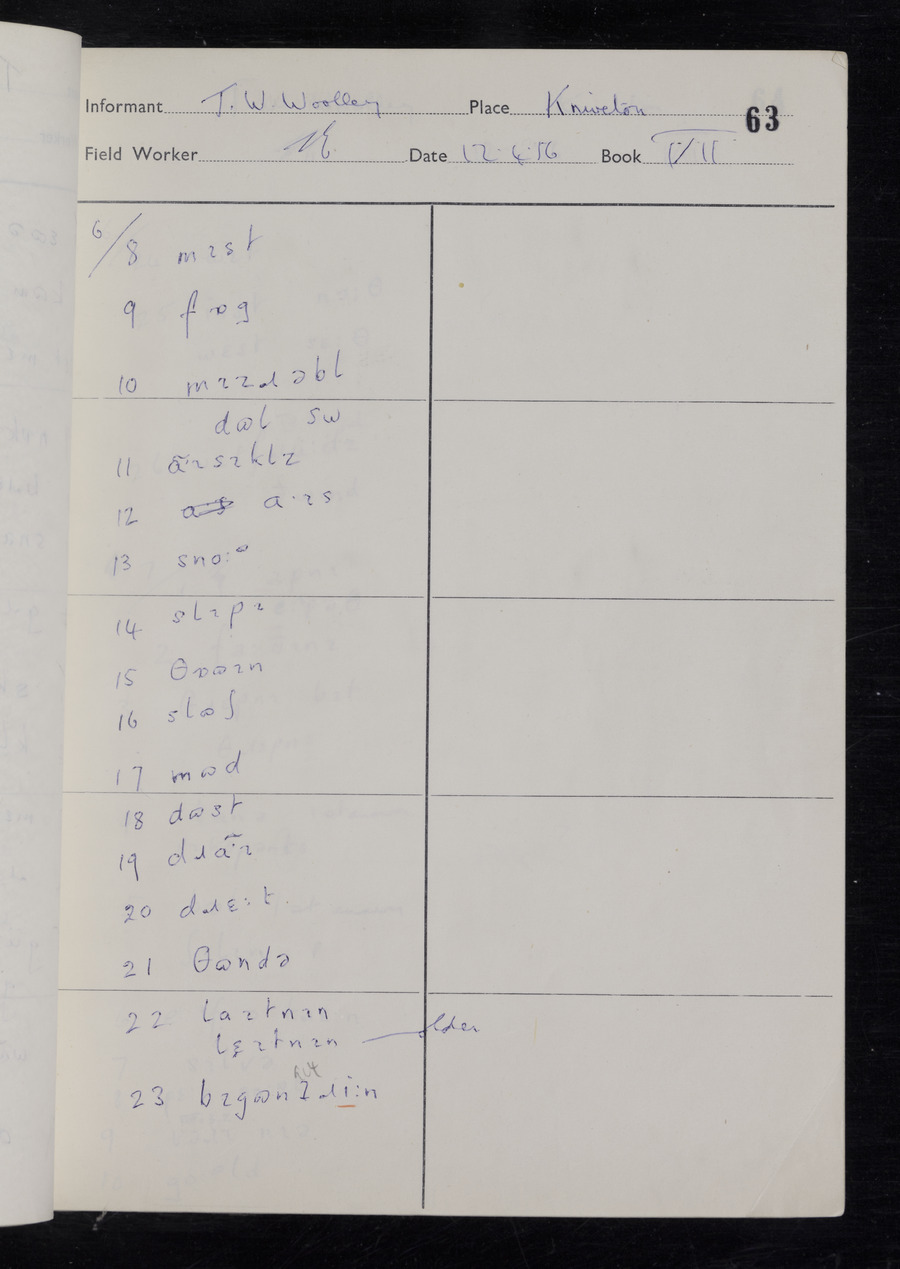 Informant T. W. Woolley Place Kniveton 63
Field Worker Date 12.4.56 Book VII
6/8 mɪst
9 fɒg
10 mɪzɹəbl
dɷl
11 ɑ̄ɪsɪklz
12 ɑ·ɪs
13 sno:ᵊ
14 slɪpɪ
15 θɒɷɪn
16 slɷʃ
17 mɷd
18 dɷst
19 dɹɑ̄ɪ
20 dɹɛ:t
21 θɷndə
22 laɪtnɪn
lɛɪtnɪn older
23 bɪgɷnɹi:n